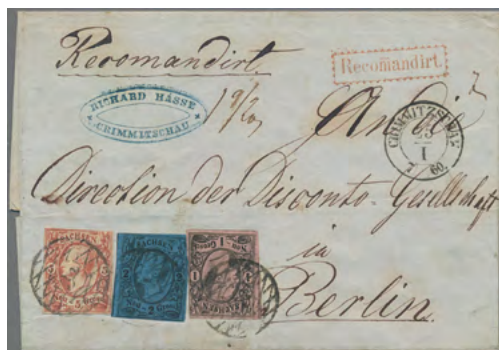 Recomandirt
Recomandirt.
RICHARD HÄSSE
CRIMMITSCHAU
An die
CRIMMITZSCHAU
I
60.
Direction der Disconto-Gesellschaft
in
Berlin.
SACHSEN
SACHSEN